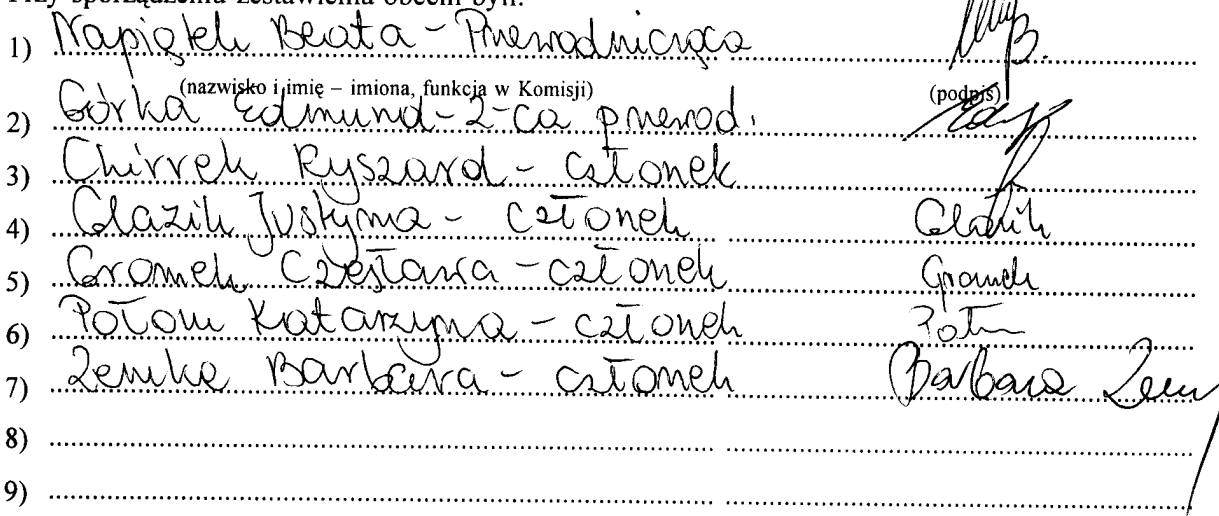 Przy sporządzeniu zestawienia obecni byli:
1) Napiątek Beata - Przewodnicząca
(nazwisko i imię – imiona, funkcja w Komisji) (podpis)
2) Górka Edmund - Z-ca przewod.
3) Chirrek Ryszard - członek
4) Glazik Justyna - członek Glazik
5) Gromek Czesława - członek Gromek
6) Połom Katarzyna - członek
7) Zemke Barbara - członek Barbara
8)
9)